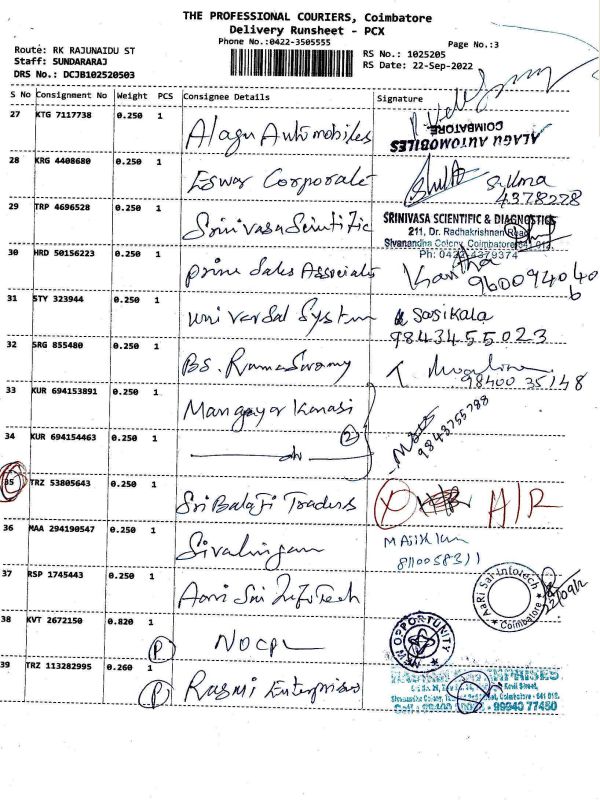 THE PROFESSIONAL COURIERS, Coimbatore
Delivery Runsheet - PCX
Phone No.:0422-3505555
Page No.:3
Route: RK RAJUNAIDU ST
RS No.: 1025205
Staff: SUNDARARAJ
RS Date: 22-Sep-2022
DRS No.: DCJB102520503
S No Consignment No Weight PCS Consignee Details Signature
27 KTG 7117738 0.250 1 Alagu Automobiles
ALAGU AUTOMOBILES
COIMBATORE.
28 KRG 4408680 0.250 1 Eswar Corporate
4378228
29 TRP 4696528 0.250 1 Srinivasa Scientific
SRINIVASA SCIENTIFIC & DIAGNOSTICS
211, Dr. Radhakrishnan Road
Sivanandha Colony, Coimbatore-641 012.
Ph: 0422-4379374
30 HRD 50156223 0.250 1 Prime Sales Associate
Kavitha
960094040
6
31 STY 323944 0.250 1 Universal System Sasikala
9843455023
32 SRG 855480 0.250 1 BS. Ramaswamy
98400 35148
33 KUR 694153891 0.250 1 Mangayarkarasi
9843755788
34 KUR 694154463 0.250 1 do 2
35 TRZ 53805643 0.250 1 Sri Balaji Traders A/R
36 MAA 294190547 0.250 1 Sivalingam
37 RSP 1745443 0.250 1 Aari Sri Infotech
Aari Sai Infotech
Coimbatore
38 KVT 2672150 0.820 1 P NOCPL
NEW OPPORTUNITY
39 TRZ 113282995 0.260 1 P Rasmi Enterprises
ENTERPRISES
99940 77450